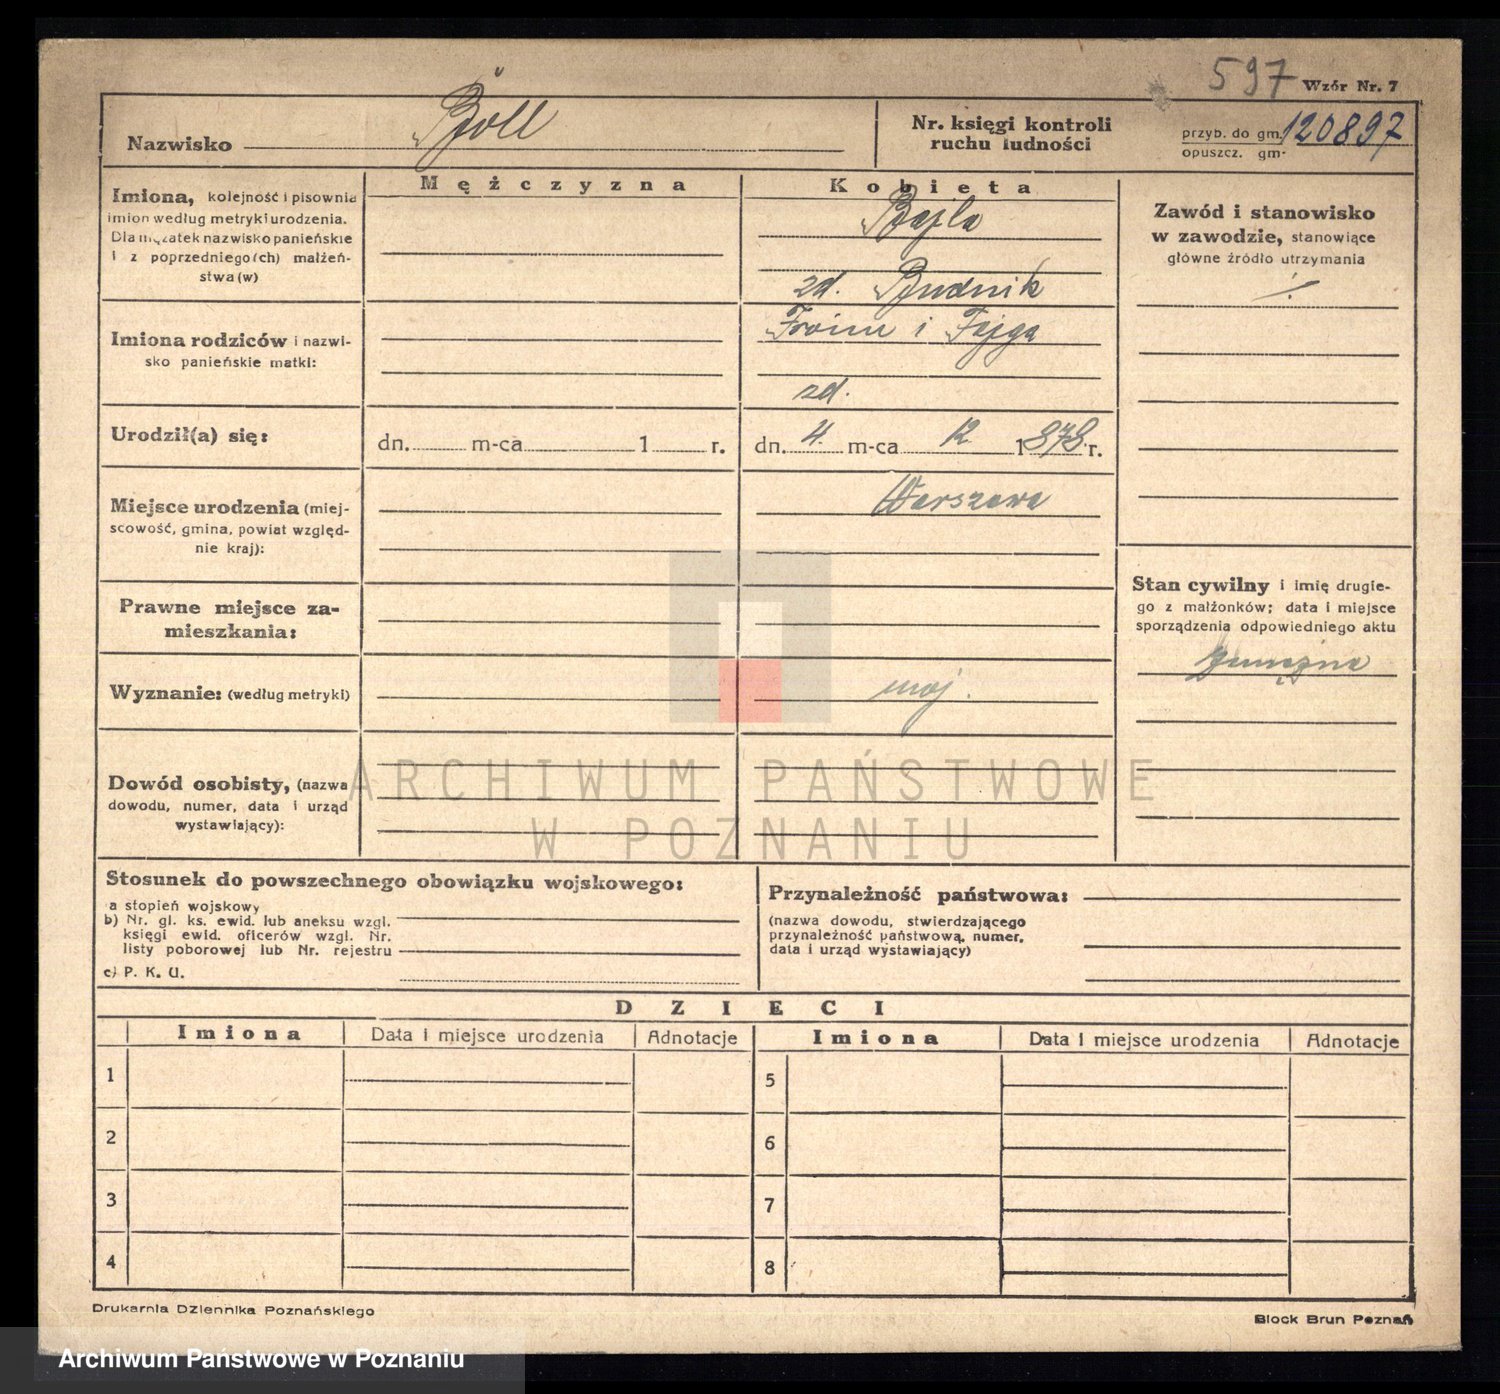 597 Wzór Nr. 7
Nazwisko Böll
Nr. księgi kontroli
ruchu ludności
przyb. do gm. 120897
opuszcz. gm.
Mężczyzna
Kobieta
Imiona, kolejność i pisownia
imion według metryki urodzenia.
Dla mężatek nazwisko panieńskie
i z poprzedniego(ch) małżeń-
stwa(w)
Bajla
zd. Budnik
Zawód i stanowisko
w zawodzie, stanowiące
główne źródło utrzymania
Imiona rodziców i nazwi-
sko panieńskie matki:
Froim i Fajga
zd.
Urodził(a) się:
dn. m-ca 1 r.
dn. 4. m-ca 12 1878 r.
Miejsce urodzenia (miej-
scowość, gmina, powiat względ-
nie kraj):
Warszawa
Stan cywilny i imię drugie-
go z małżonków; data i miejsce
sporządzenia odpowiedniego aktu
zamężna
Prawne miejsce za-
mieszkania:
Wyznanie: (według metryki)
moj.
Dowód osobisty, (nazwa
dowodu, numer, data i urząd
wystawiający):
ARCHIWUM PAŃSTWOWE
W POZNANIU
Stosunek do powszechnego obowiązku wojskowego:
a stopień wojskowy
b) Nr. gl. ks. ewid. lub aneksu wzgl.
księgi ewid. oficerów wzgl. Nr.
listy poborowej lub Nr. rejestru
c) P. K. U.
Przynależność państwowa:
(nazwa dowodu, stwierdzającego
przynależność państwową, numer,
data i urząd wystawiający)
DZIECI
Imiona Data i miejsce urodzenia Adnotacje Imiona Data i miejsce urodzenia Adnotacje
1 5
2 6
3 7
4 8
Drukarnia Dziennika Poznańskiego
Block Brun Poznań
Archiwum Państwowe w Poznaniu